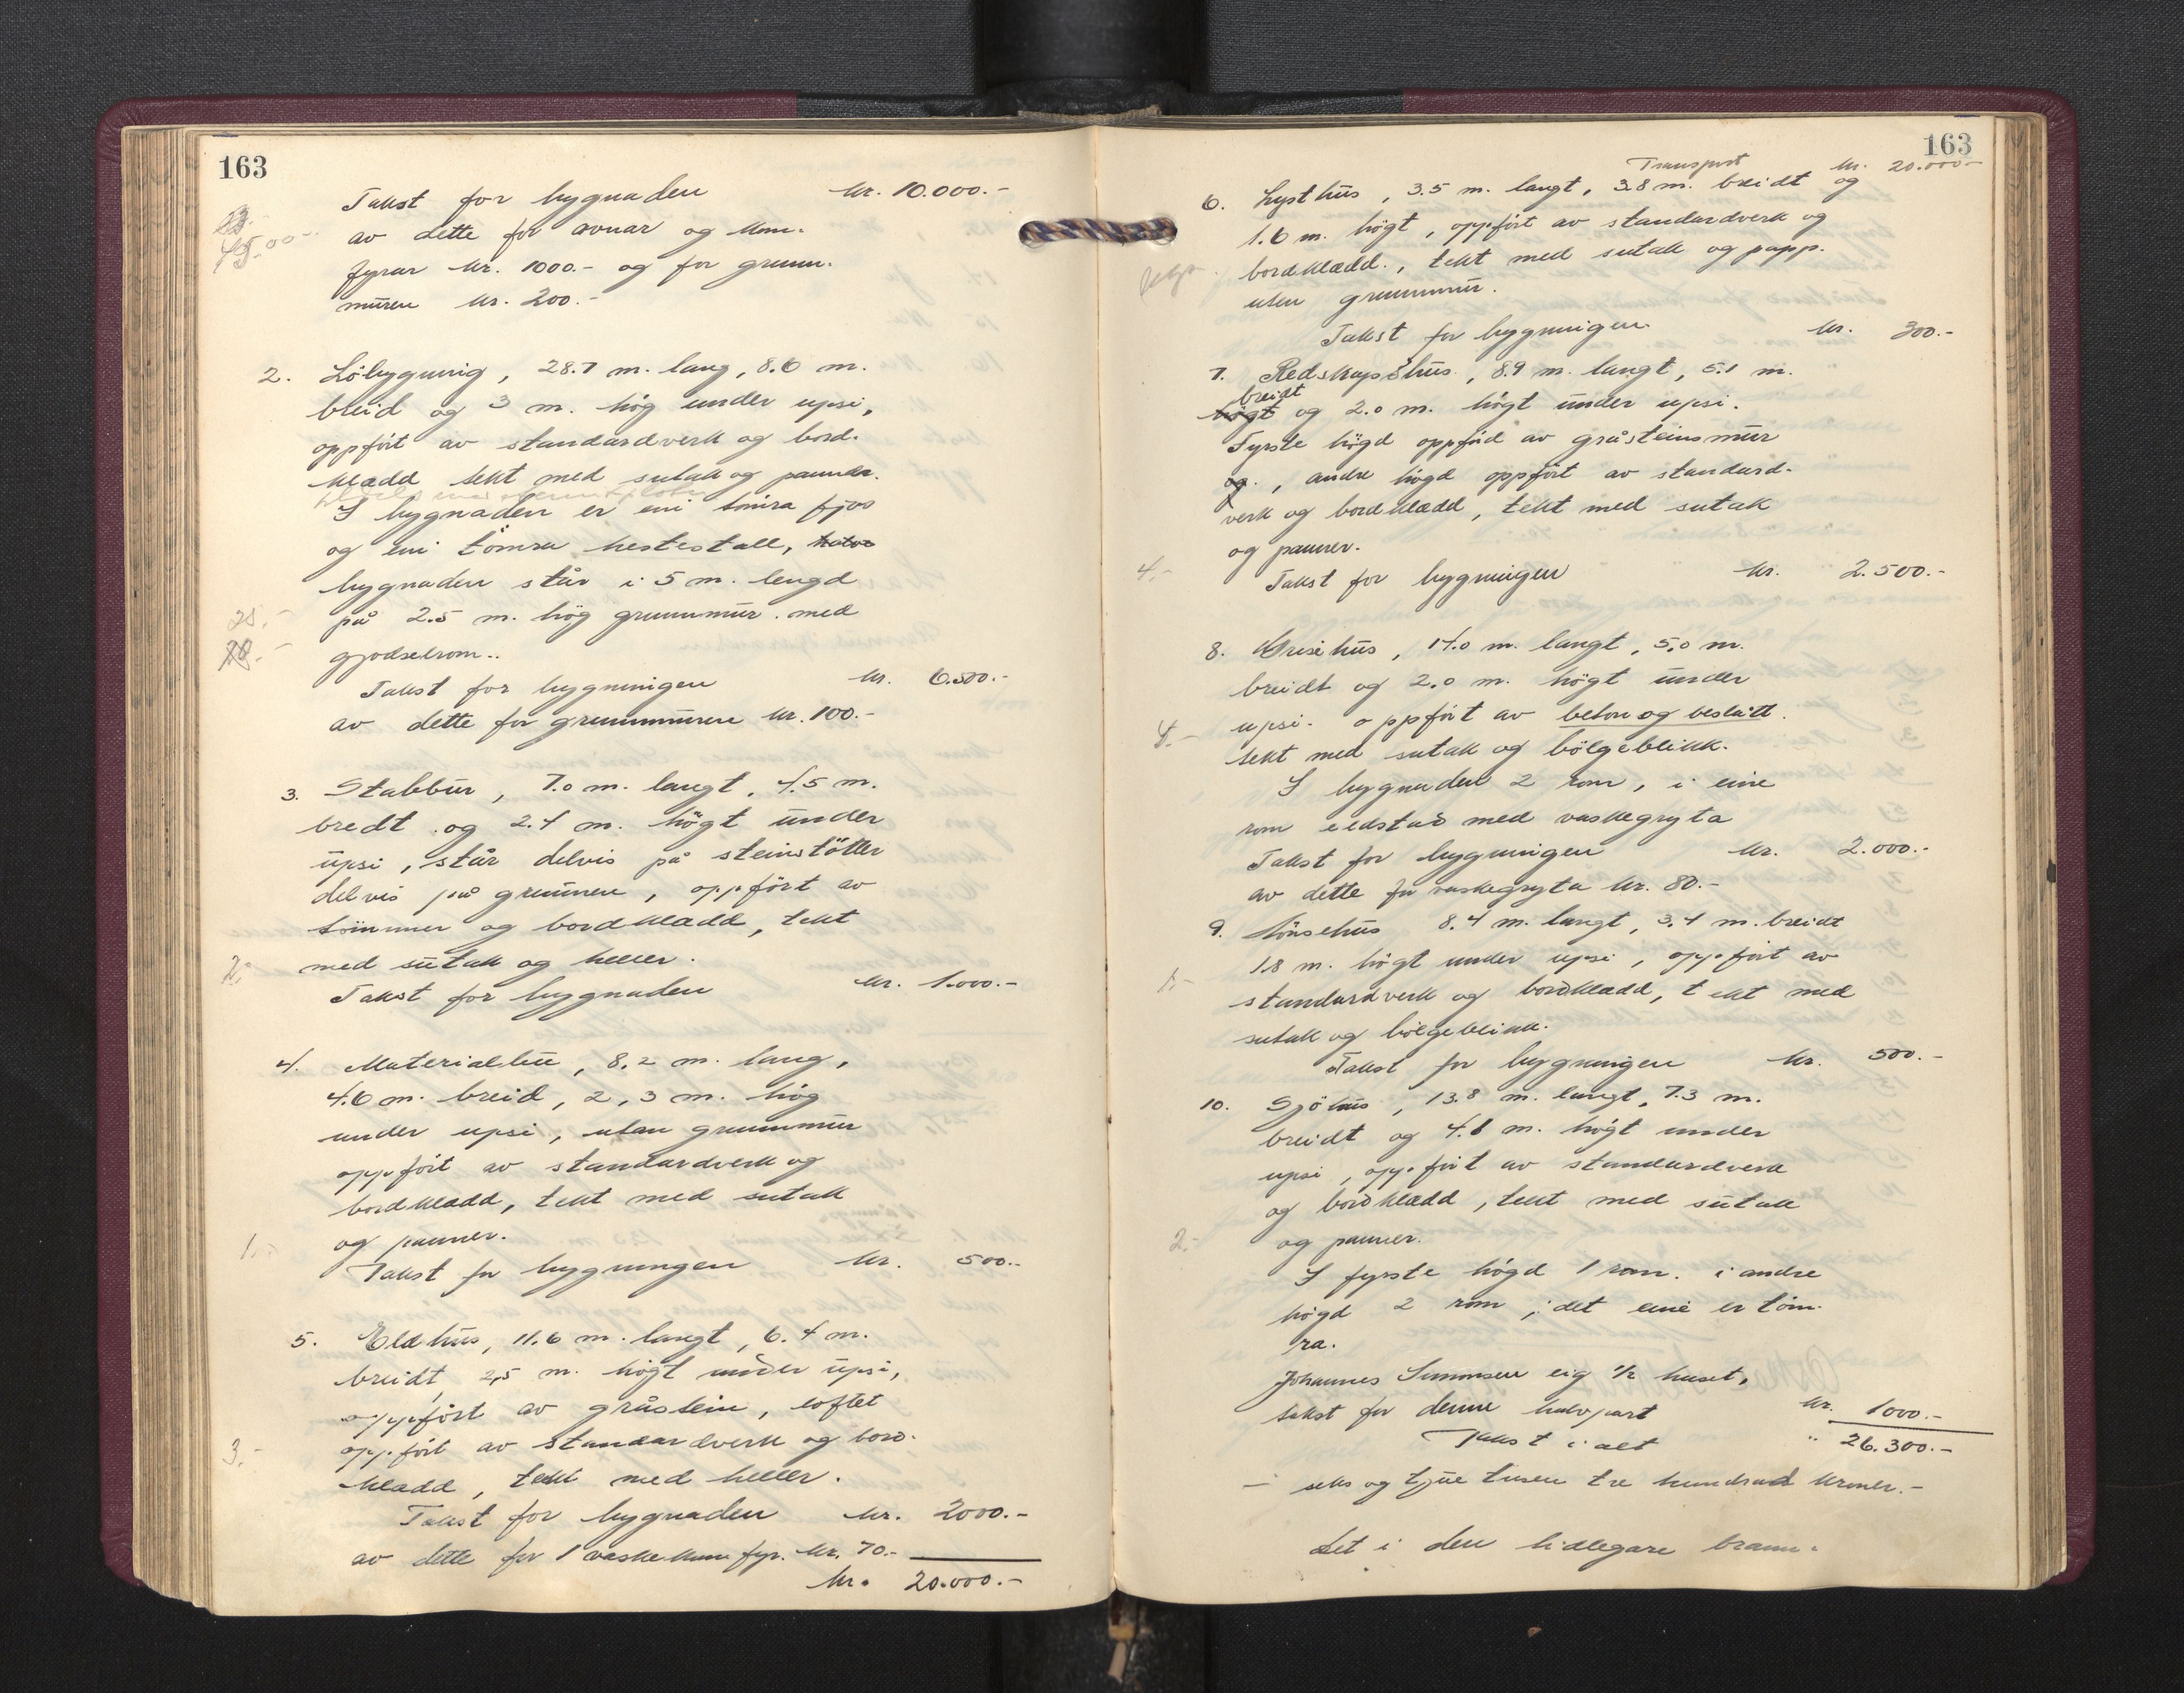 163
Takst for bygnaden kr. 10.000.-
av dette for ovnar og kom-
fyrar kr. 1000.- og for grunn-
muren kr. 200.-
2. Löbygning, 28.7 m. lang, 8.6 m.
breid og 3 m. hög under upsi,
oppfört av standardverk og bord-
klædd tekt med sutak og panner.
I bygnaden er eini tömra fjos
og eini tömra hestestall,
bygnaden står i 5 m. lengd
på 2.5 m. hög grunnmur. med
gjodselrom..
Takst for bygningen kr. 6.500.-
av dette for grunnmuren kr. 100.-
3. Stabbur, 7.0 m. langt, 4.5 m.
bredt og 2.4 m. högt under
upsi, står delvis på steinstötter
delvis på grunnen, oppfört av
tömmer og bordklædd, tekt
2.- med sutak og heller.
Takst for bygnaden kr. 1.000.-
4. Materialbu, 8.2 m. lang,
4.6 m. breid, 2,3 m. hög
under upsi, utan grunnmur
oppfört av standardverk og
bordkladd, tekt med sutak
1.- og panner.
Takst for bygningen kr. 500.-
5. Eldhus, 11.6 m. langt, 6.4 m.
breidt, 2,5 m. högt under upsi,
oppfört av gråstein, loftet
oppfört av standardverk og bord-
3.- kladd, tekt med heller.
Takst for bygnaden kr. 2000.-
av dette for 1 vaskekum fyr. kr. 70.-
kr. 20.000.-
163
Transport kr. 20.000.-
6. Lysthus, 3.5 m. langt, 3.8 m. breidt og
1.6 m. högt, oppfört av standardverk og
bordklædd., tekt med sutak og papp.
uten grunnmur.
Takst for bygningen. kr. 300.-
7. Redskapshus, 8.9 m. langt, 5.1 m.
breidt
högt og 2.0 m. högt under upsi.
Fyrste högd oppföd av gråsteinsmur
og., andre högd oppfört av standard-
verk og bordklædd, tekt med sutak
og panner.
4.- Takst for bygningen kr. 2.500.-
8. Grisehus, 14.0 m. langt, 5,0 m.
breidt og 2.0 m. högt under
4.- upsi. oppfört av beton og beslått.
tekt med sutak og bölgeblikk.
I bygnaden 2 rom, i eine
rom eldstad med vaskegryta
Takst for bygningen kr. 2.000.-
av dette for vaskegryta kr. 80.-
9. Hönsehus 8.4 m. langt, 3.4 m. breidt
1.8 m. högt under upsi, oppfört av
1.- standardverk og bordklædd, tekt med
sutak og bölgeblikk.
Takst for bygningen kr. 500.-
10. Sjöhus, 13.8 m. langt, 7.3 m.
breidt og 4.1 m. högt under
upsi, oppfört av standardverk
og bordklædd, tekt med sutak
2.- og panner.
I fyrste högd 1 rom. i andre
högd 2 rom, det eine er töm-
ra.
Johannes Simonsen eig 1/2 huset,
takst for denne halvpart kr. 1000.-
Takst i alt " 26.300.-
- seks og tjue tusen tre hundrad kroner.-
Det i den tidlegare brann-